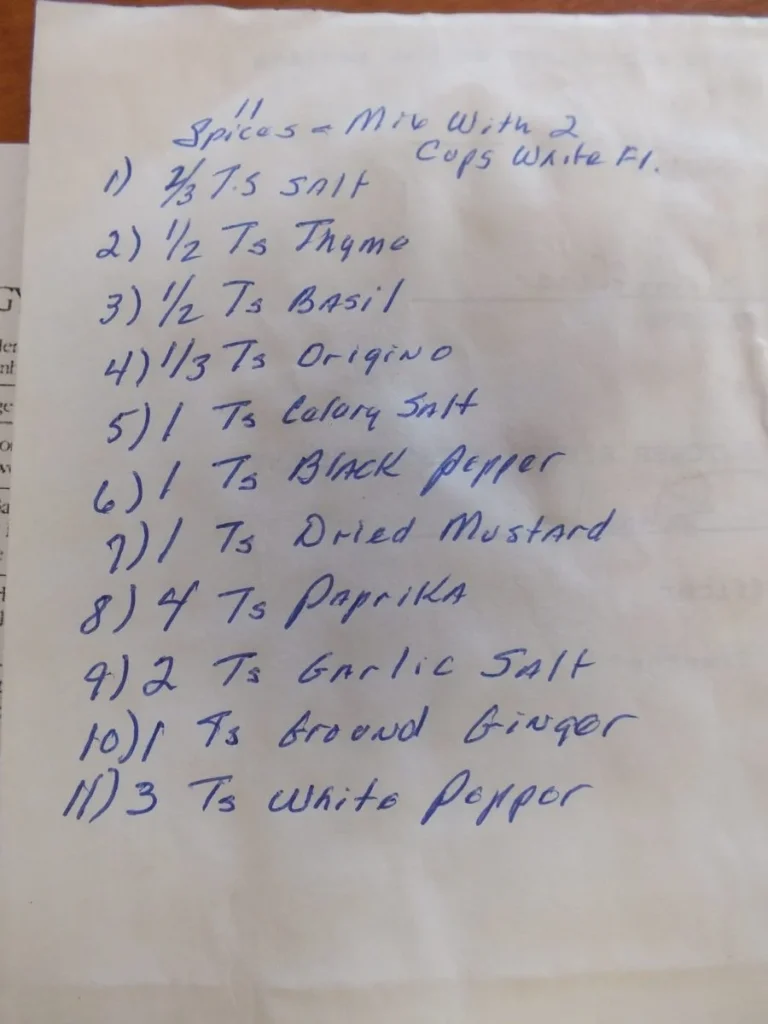 11
Spices - Mix With 2
Cups White Fl.
1) 2/3 T.S SAlt
2) 1/2 Ts Thyme
3) 1/2 Ts BAsil
4) 1/3 Ts Origino
5) 1 Ts Celary SAlt
6) 1 Ts BlAcK Pepper
7) 1 Ts Dried MustArd
8) 4 Ts PApriKA
9) 2 Ts GArlic SAlt
10) 1 Ts Ground Ginger
11) 3 Ts White Pepper